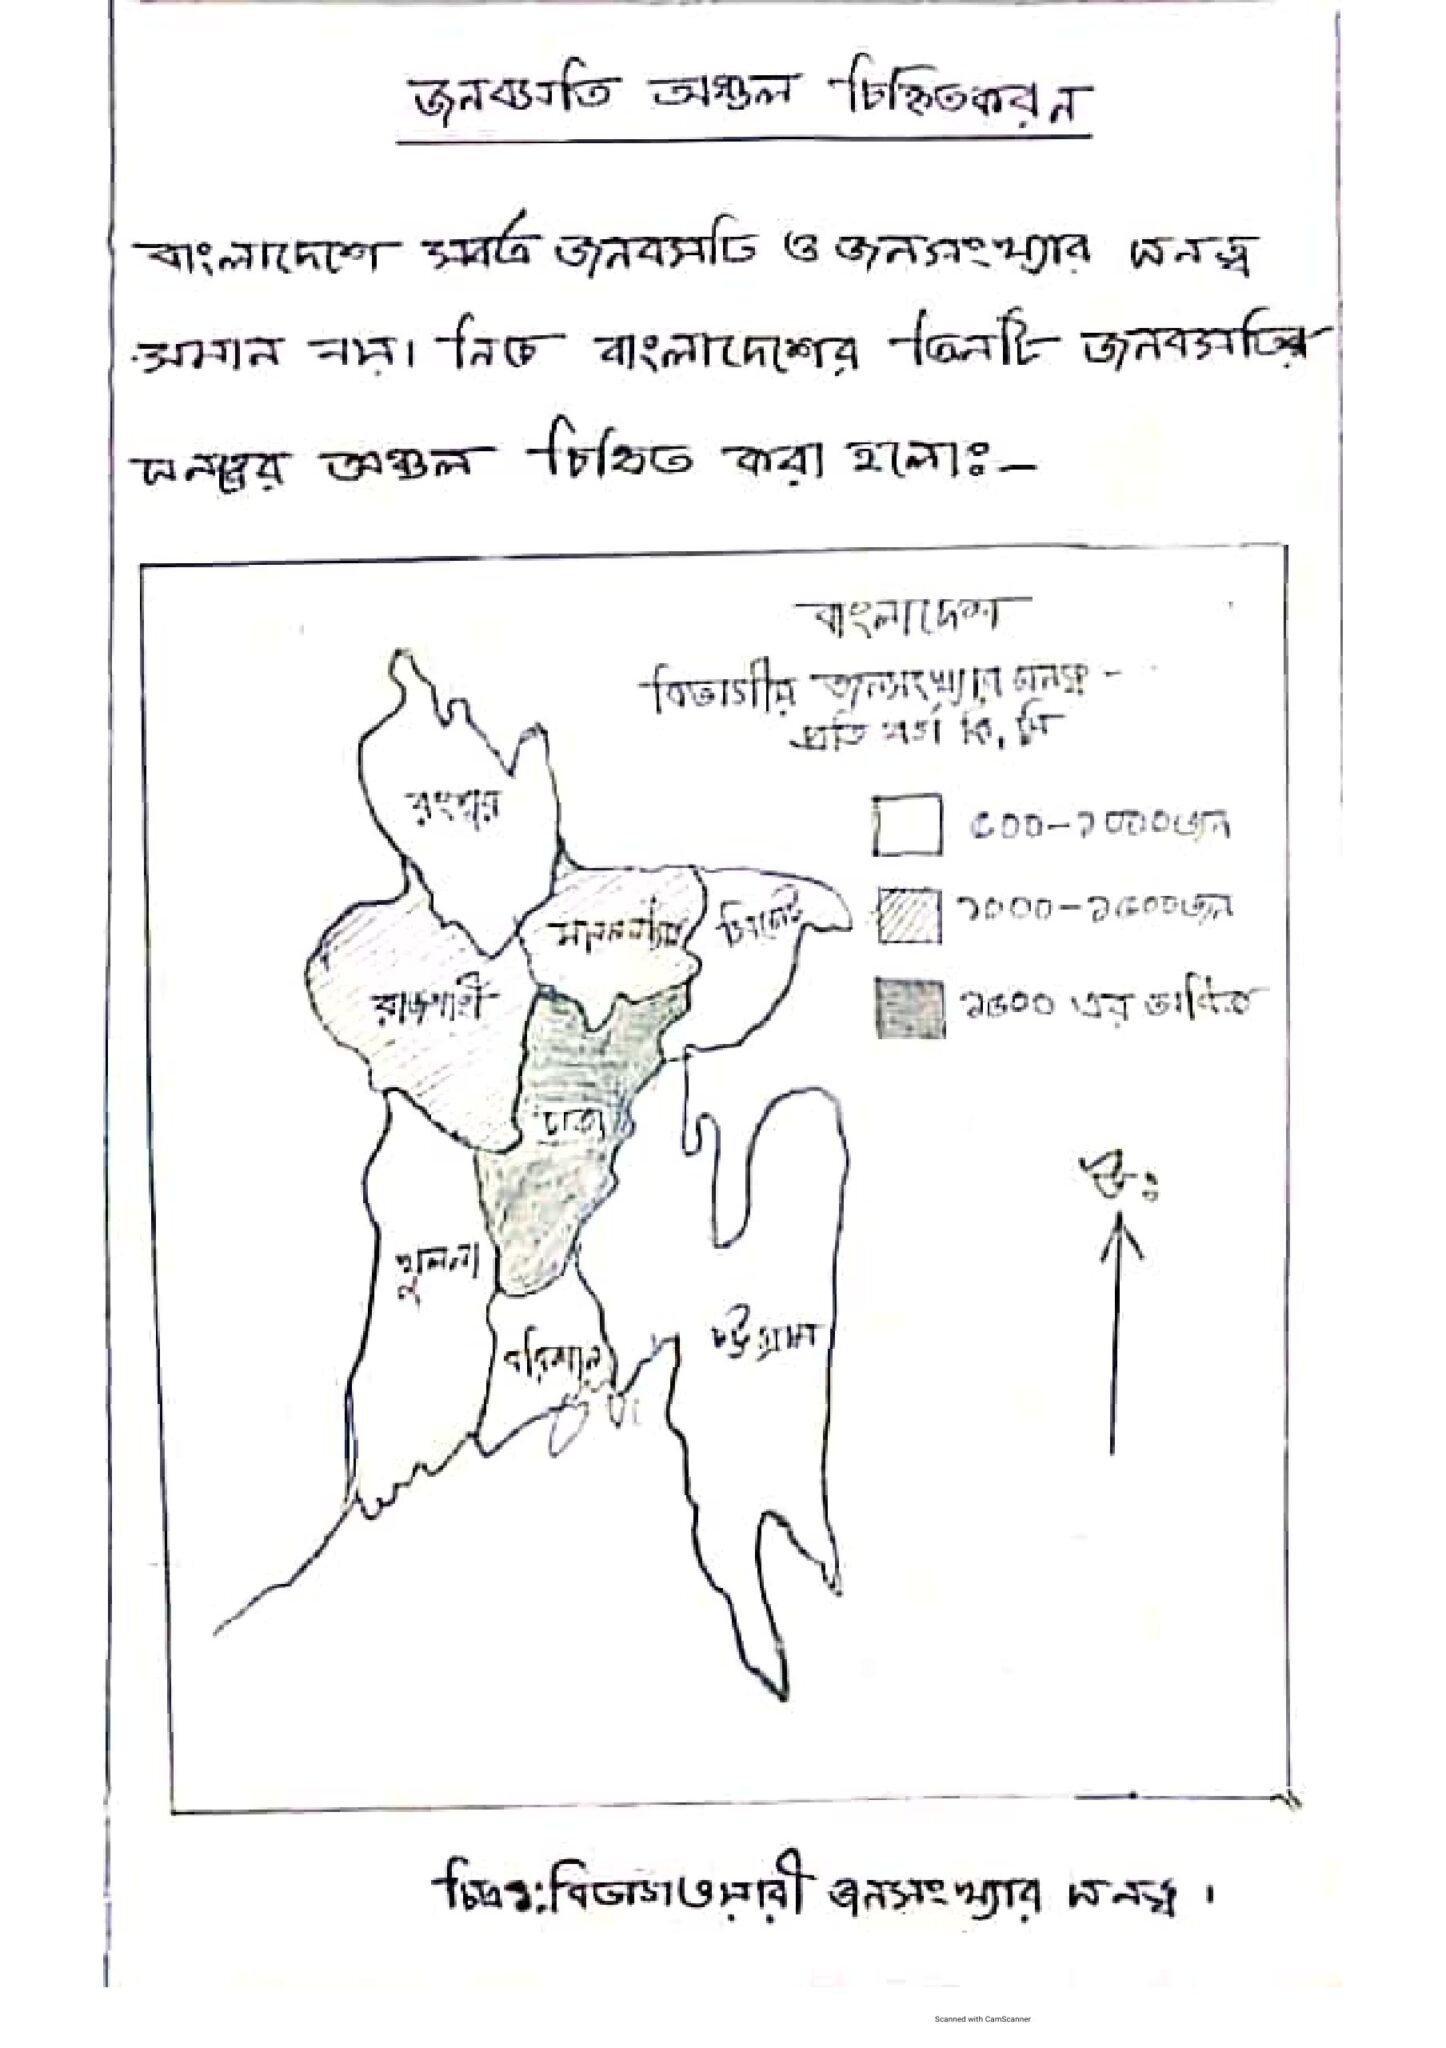 জনবসতি অঞ্চল চিহ্নিতকরন
বাংলাদেশে সর্বত্র জনবসতি ও জনসংখ্যার ঘনত্ব
সমান নয়। নিচে বাংলাদেশের তিনটি জনবসতির
ঘনত্বের অঞ্চল চিহ্নিত করা হলোঃ-
বাংলাদেশ
বিভাগীয় জনসংখ্যার ঘনত্ব -
প্রতি বর্গ কি, মি
৫০০-১০০০জন
১০০০-১৫০০জন
১৫০০ এর অধিক
রংপুর
ময়মনসিংহ
সিলেট
রাজশাহী
ঢাকা
উঃ
খুলনা
বরিশাল
চট্টগ্রাম
চিত্রঃ:বিভাগওয়ারী জনসংখ্যার ঘনত্ব ।
Scanned with CamScanner